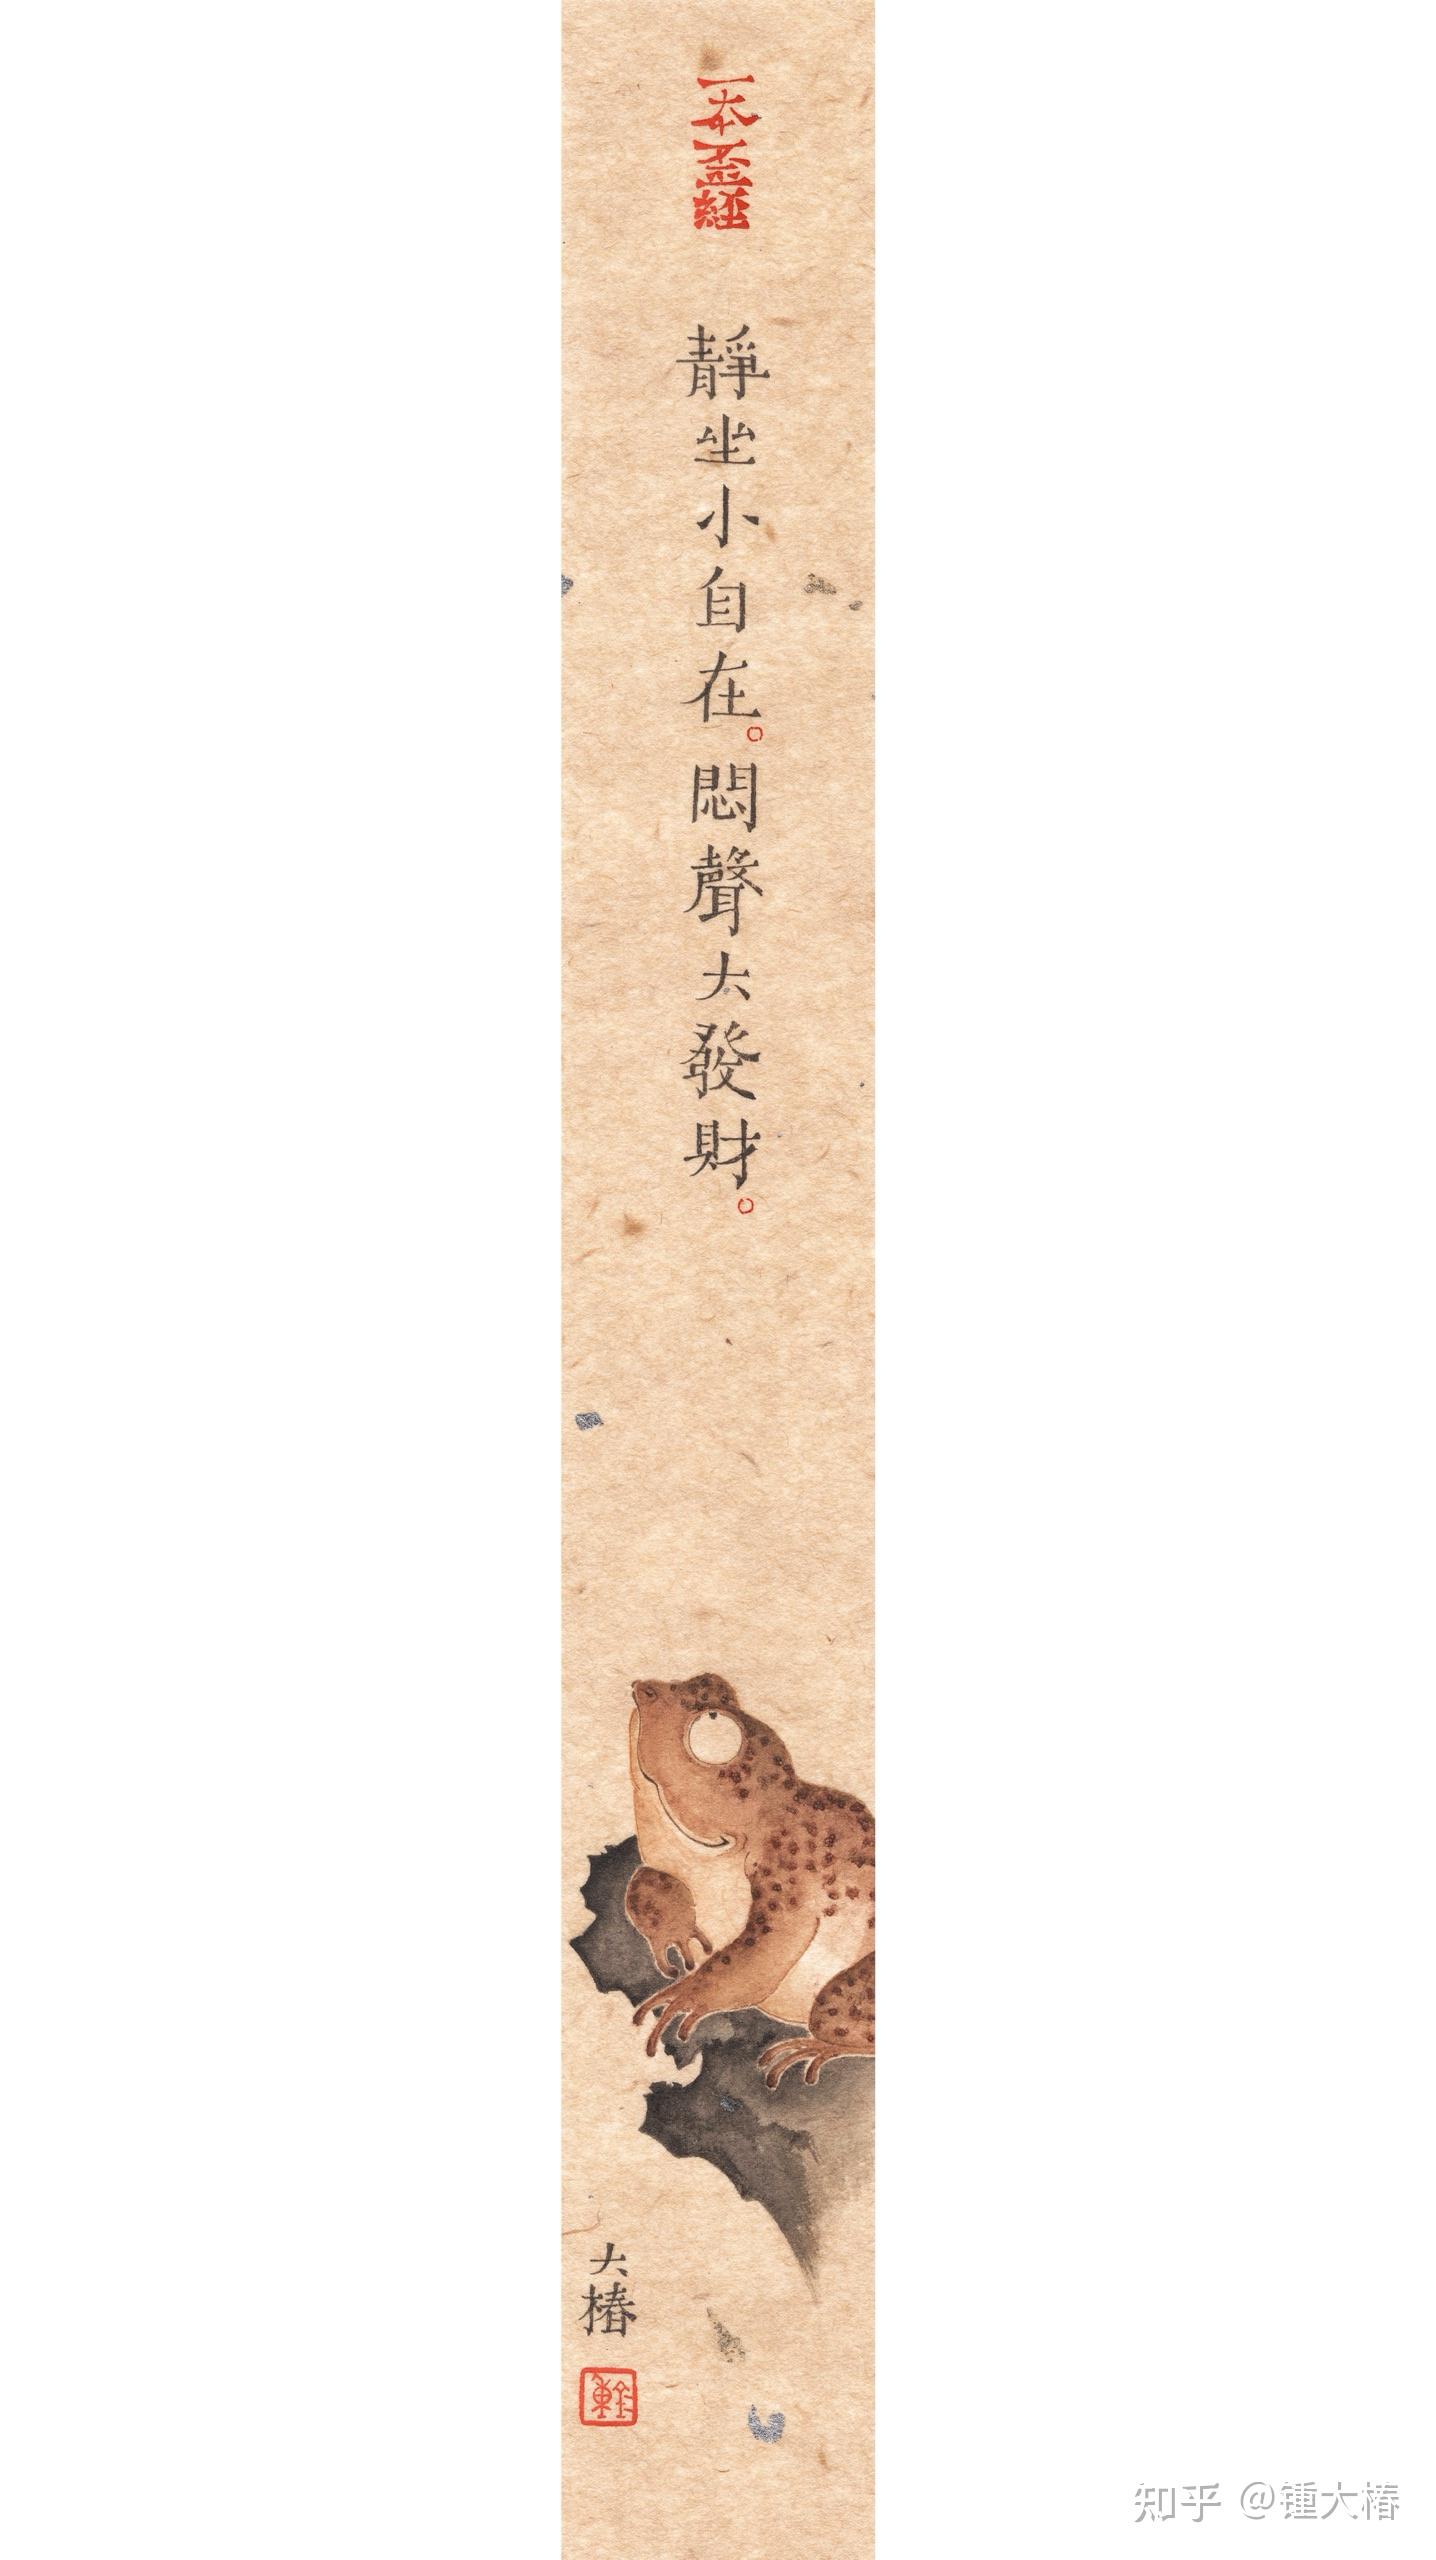 一本歪經
靜坐小自在。悶聲大發財。
大椿
知乎 @锺大椿